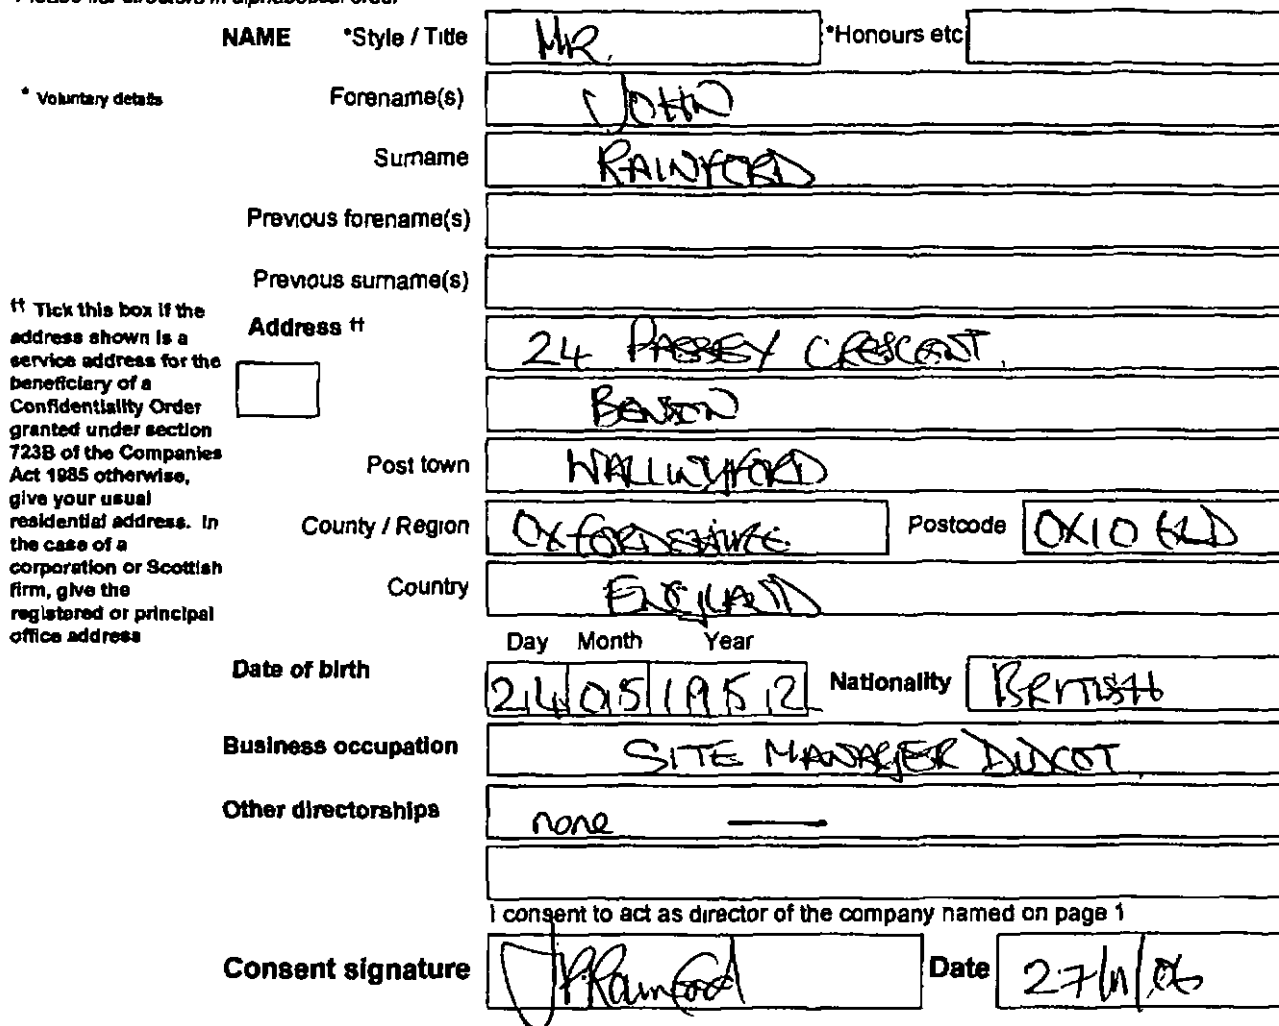 Please list directors in alphabetical order
NAME *Style / Title MR. *Honours etc
* Voluntary details Forename(s) JOHN
Surname RAINFORD
Previous forename(s)
Previous surname(s)
†† Tick this box if the
address shown is a
service address for the
beneficiary of a
Confidentiality Order
granted under section
723B of the Companies
Act 1985 otherwise,
give your usual
residential address. In
the case of a
corporation or Scottish
firm, give the
registered or principal
office address
Address †† 24 PASSEY CRESCENT.
BENSON
Post town WALLINGFORD
County / Region OXFORDSHIRE Postcode OX10
Country ENGLAND
Day Month Year
Date of birth 24 05 1952 Nationality BRITISH
Business occupation SITE MANAGER DIDCOT
Other directorships none —
I consent to act as director of the company named on page 1
Consent signature JPRainford Date 27/11/06